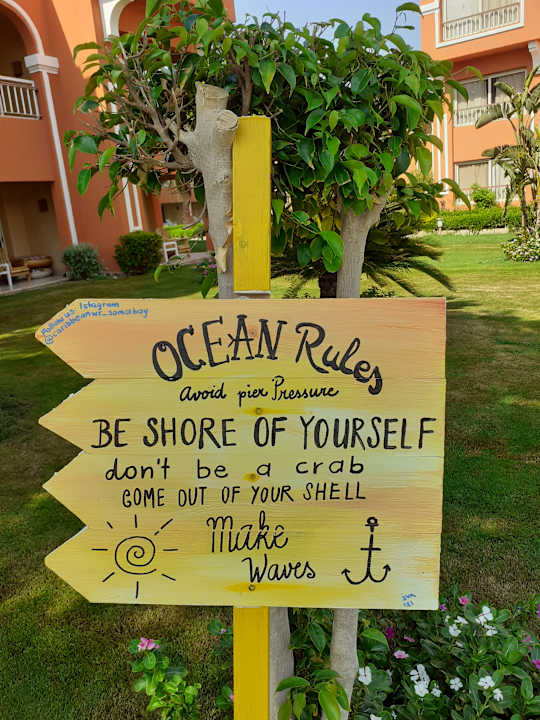 Follow us Istagram
OCEAN Rules
Avoid pier Pressure
BE SHORE OF YOURSELF
don't be a crab
COME OUT OF YOUR SHELL
Make
Waves